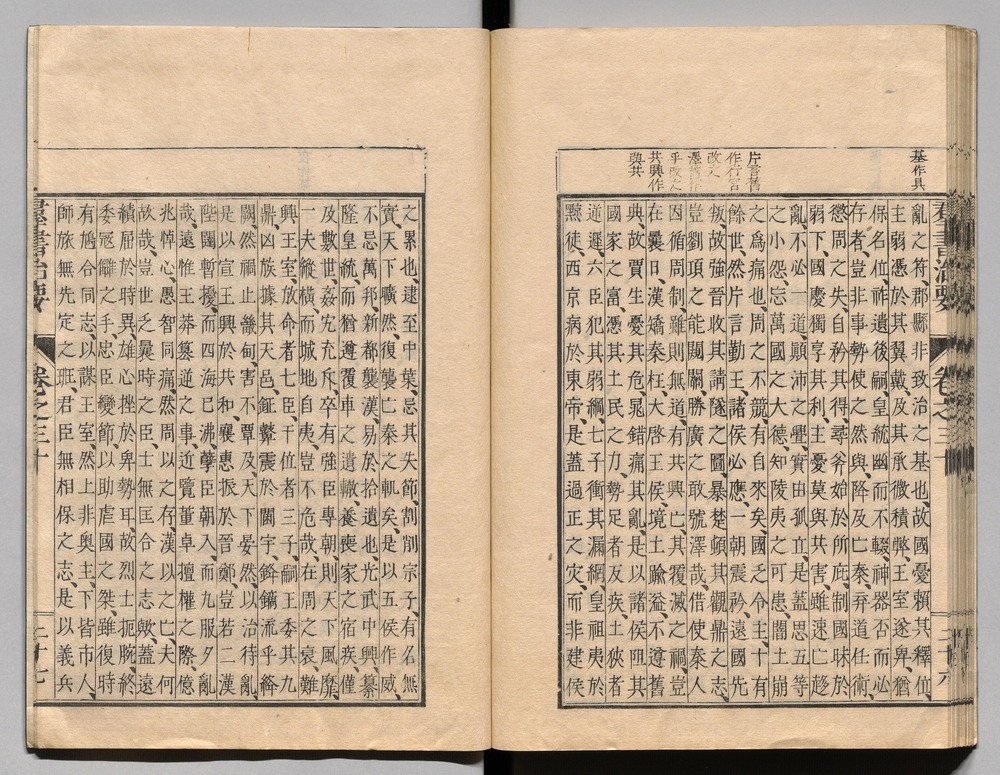 基作具
片言舊
作行言
改之
澤舊作
乎改之
共興作
與共
羣書治要 卷之三十 二十六
亂之符、郡縣非致治之基也、故國憂賴其釋位、
主弱憑於其翼戴、及其承微積弊、王室遂卑、猶
保名位、祚遺後嗣、皇統幽而不輟、神器否而必
存者、豈非事勢使之然與、降及亡秦、弃道任術、
懲周之失、自矜其得、尋斧始於所庇、制國昧於
弱下、國慶獨享其利、主憂莫與共害、雖速亡趍
亂、不必一道、顛沛之舋、實由孤立、是蓋思五等
之小怨、忘萬國之大德、知陵夷之可患、闇土崩
之爲痛也、周之不競、有自來矣、國乏令主、十有
餘世、然片言勤王、諸侯必應、一朝震矜、遠國先
叛、故強晉收其請隧之圖、暴楚頓其觀鼎之志、
豈劉項之能闚關、勝廣之敢號澤哉、借使秦人
因循周制、雖則無道、有共興亡、其覆滅之禍、豈
在曩日、漢矯秦枉、大啓王侯、境土踰溢、不遵舊
典、故賈生憂其危、晁錯痛其亂、是以諸侯阻其
國家之富、憑其土民之力、勢足者反疾、土狹者
逆遲、六臣犯其弱綱、七子衝其漏網、皇祖夷於
黥徒、西京病於東帝、是蓋過正之灾、而非建侯
之累也、逮至中葉、忌其失節、割削宗子、有名無
實、天下曠然、復襲亡秦之軌矣、是以五侯作威、
不忌萬邦、新都襲漢、易於拾遺也、光武中興、纂
隆皇統、而猶遵覆車之遺轍、養喪家之宿疾、僅
及數世、姦宄充斥、卒有強臣專朝、則天下風靡、
一夫縱橫、而城地自夷、豈不危哉、在周之衰、難
興王室、放命者七臣、干位者三子、嗣王委其九
鼎、凶族據其天邑、鉦鼙震於閫宇、鋒鏑流乎絳
闕、然禍止畿甸、害不覃及、天下晏然、以治待亂、
是以宣王興於共和、襄惠振於晉鄭、豈若二漢
階闥暫擾、而四海已沸、孽臣朝入、而九服夕亂
哉、遠惟王莽簒逆之事、近覽董卓擅權之際、億
兆悼心、愚智同痛、然周以之存、漢以之亡、夫何
故哉、豈世乏曩時之臣、士無匡合之志歟、蓋遠
績屈於時異、雄心挫於卑勢耳、故烈士扼腕、終
委寇讎之手、忠臣變節、以助虐國之桀、雖復時
有鳩合同志、以謀王室、然上非奥主、下皆市人、
師旅無先定之班、君臣無相保之志、是以義兵
羣書治要 卷之三十 二十七